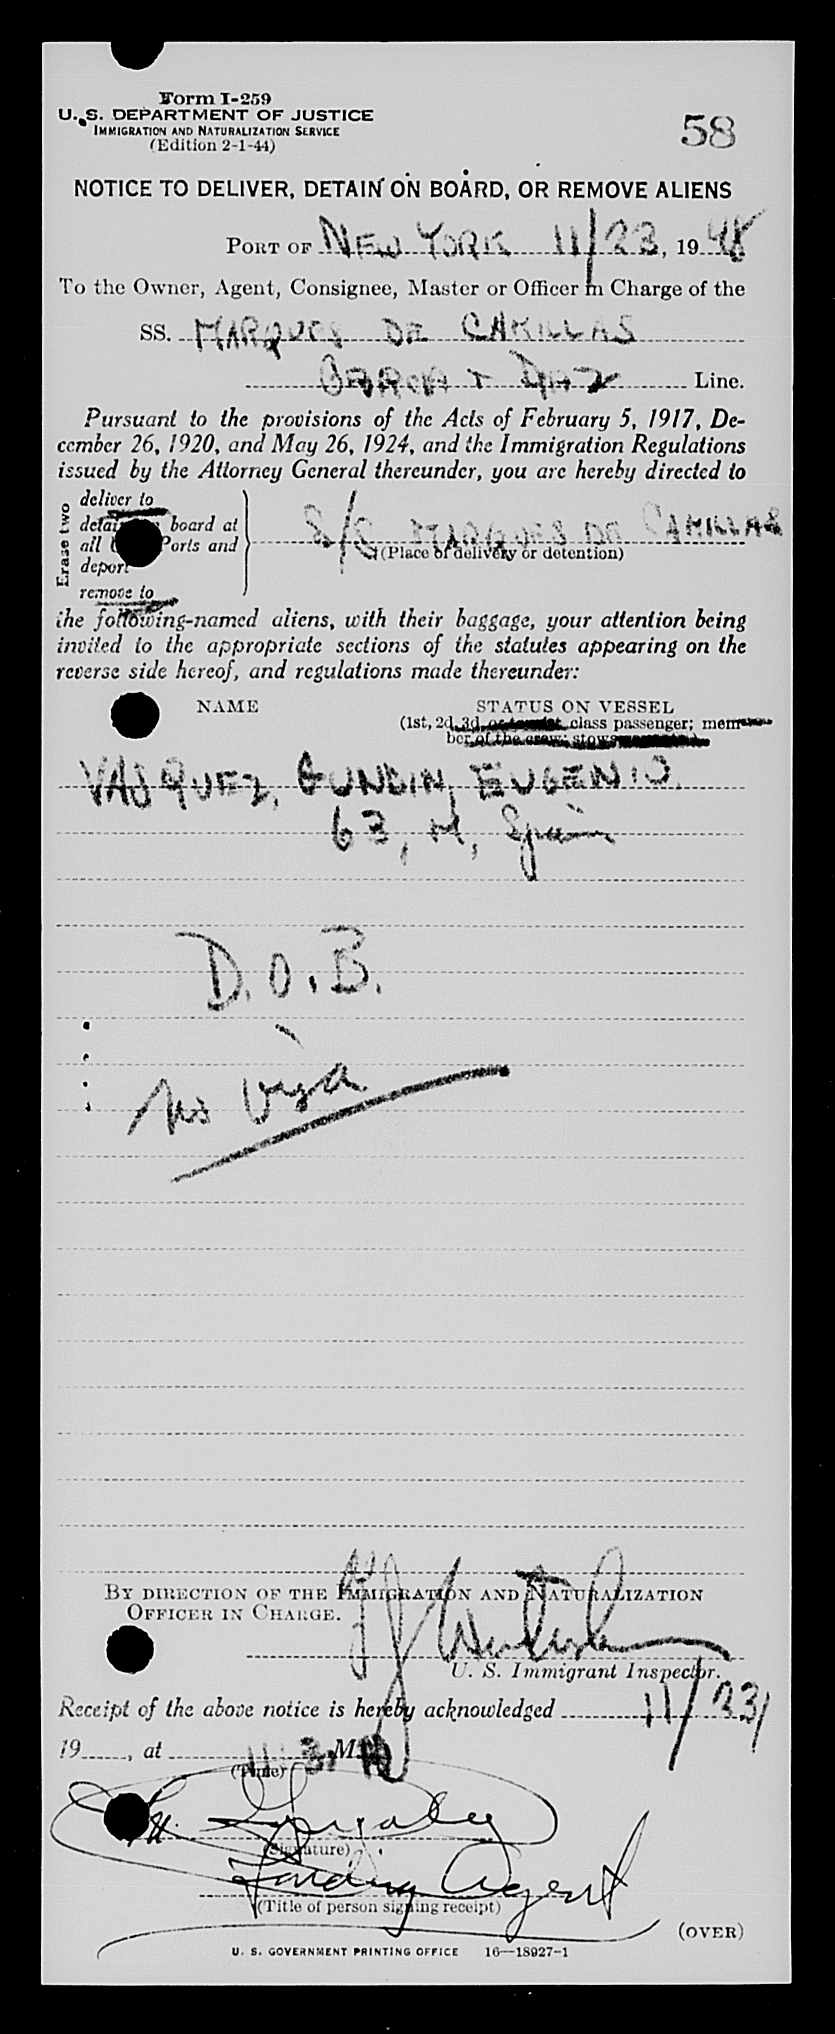 Form I-259
U. S. DEPARTMENT OF JUSTICE
IMMIGRATION AND NATURALIZATION SERVICE
(Edition 2-1-44)
58
NOTICE TO DELIVER, DETAIN ON BOARD, OR REMOVE ALIENS
PORT OF NEW YORK 11/23, 1948
To the Owner, Agent, Consignee, Master or Officer in Charge of the
SS. MARQUES DE CAMILLAS
GARCIA & DIAZ Line.
Pursuant to the provisions of the Acts of February 5, 1917, De-
cember 26, 1920, and May 26, 1924, and the Immigration Regulations
issued by the Attorney General thereunder, you are hereby directed to
Erase two
deliver to
detain on board at
all Ports and
deport
remove to
S/S MARQUES DE CAMILLAS
(Place of delivery or detention)
the following-named aliens, with their baggage, your attention being
invited to the appropriate sections of the statutes appearing on the
reverse side hereof, and regulations made thereunder:
NAME STATUS ON VESSEL
(1st, 2d, 3d, or tourist class passenger; mem-
ber of the crew; stow
VASQUEZ, GUNDIN, EUGENIO.
63, M, Spain
D.O.B.
No Visa
BY DIRECTION OF THE IMMIGRATION AND NATURALIZATION
OFFICER IN CHARGE.
U. S. Immigrant Inspector.
Receipt of the above notice is hereby acknowledged 11/23/
19 , at M.
(Time)
Gonzalez
(Signature)
Landing Agent
(Title of person signing receipt)
(OVER)
U. S. GOVERNMENT PRINTING OFFICE 16—18927-1